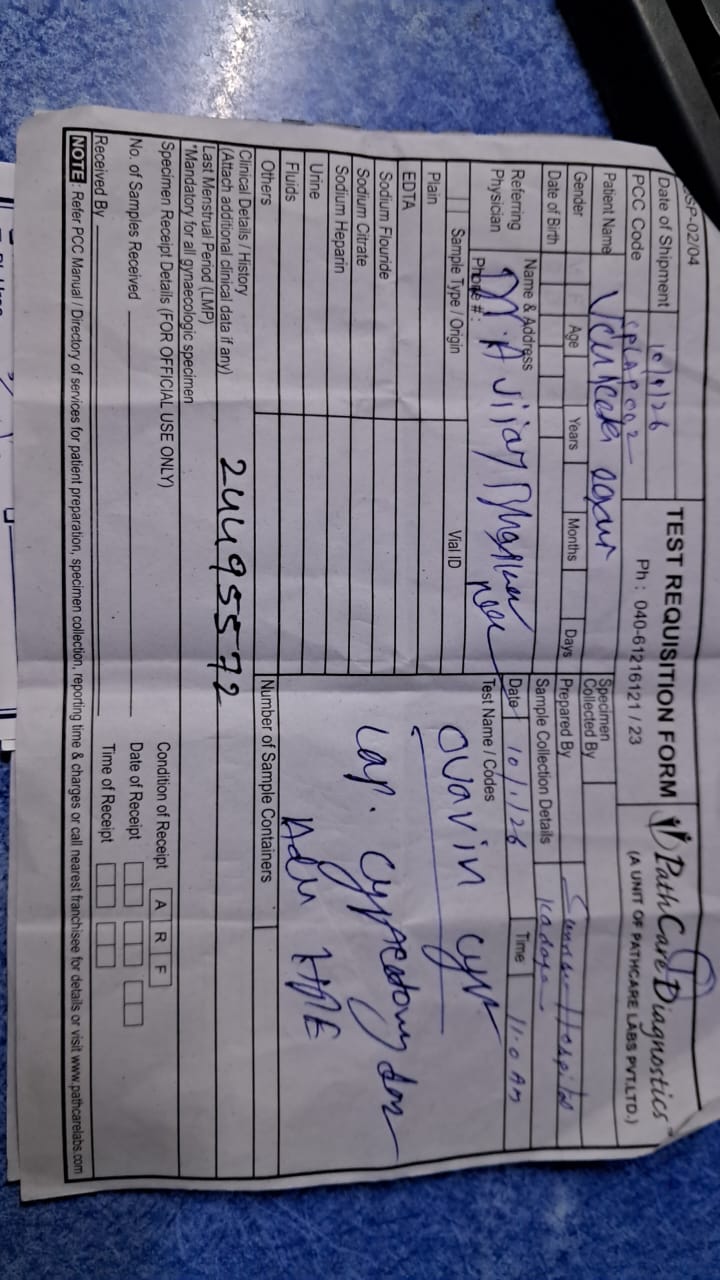 SP-02/04
TEST REQUISITION FORM
Ph : 040-61216121 / 23
PathCare Diagnostics
(A UNIT OF PATHCARE LABS PVT.LTD.)
Date of Shipment
PCC Code
Patient Name
Gender Age Years Months Days
Date of Birth
Referring Physician
Name & Address
Phone # :
Specimen Collected By
Prepared By
Sample Collection Details
Date 10/1/26 Time 11.0 AM
Sample Type / Origin Vial ID
Test Name / Codes
Plain
EDTA
Sodium Flouride
Sodium Citrate
Sodium Heparin
Urine
Fluids
Others
ovarin cyst
Lap.
Number of Sample Containers
Clinical Details / History
(Attach additional clinical data if any)
24495572
Last Menstrual Period (LMP)
*Mandatory for all gynaecologic specimen
Specimen Receipt Details (FOR OFFICIAL USE ONLY)
No. of Samples Received
Received By
Condition of Receipt A R F
Date of Receipt
Time of Receipt
NOTE : Refer PCC Manual / Directory of services for patient preparation, specimen collection, reporting time & charges or call nearest franchisee for details or visit www.pathcarelabs.com